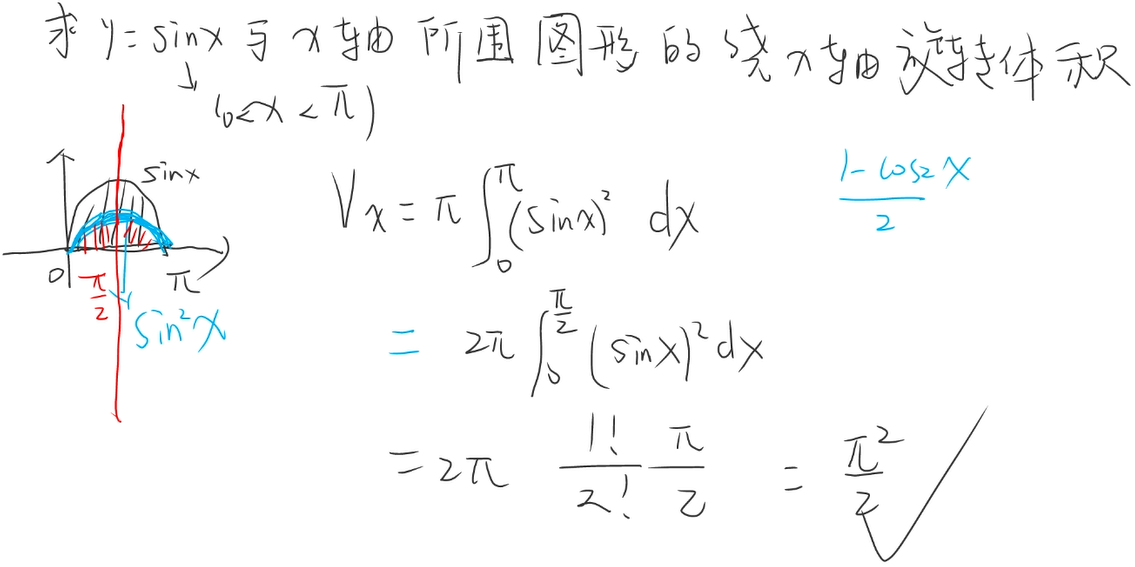 求 y = sinx 与 x轴 所围 图形 的 绕 x轴 旋转体积
(0<x<π)
sinx
0 π/2 π
sin²x
Vx = π ∫₀^π (sinx)² dx
(1-cos2x)/2
= 2π ∫₀^(π/2) (sinx)² dx
= 2π 1!!/2! π/2 = π²/2